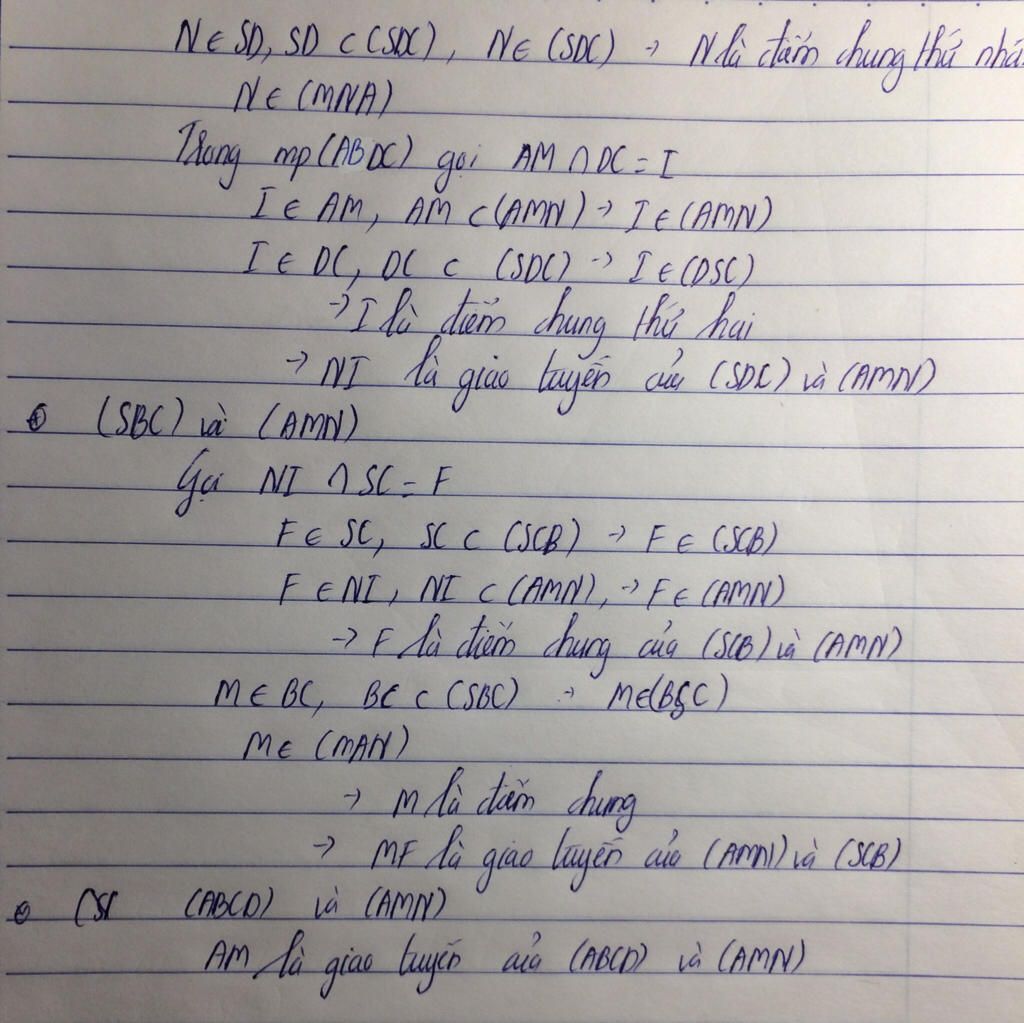 N ∈ SD, SD ⊂ (SDC), N ∈ (SDC) → N là điểm chung thứ nhấ
N ∈ (MNA)
Trong mp (ABDC) gọi AM ∩ DC = I
I ∈ AM, AM ⊂ (AMN) → I ∈ (AMN)
I ∈ DC, DC ⊂ (SDC) → I ∈ (DSC)
→ I là điểm chung thứ hai
→ NI là giao tuyến của (SDC) và (AMN)
(SBC) và (AMN)
Gọi NI ∩ SC = F
F ∈ SC, SC ⊂ (SCB) → F ∈ (SCB)
F ∈ NI, NI ⊂ (AMN), → F ∈ (AMN)
→ F là điểm chung của (SCB) và (AMN)
M ∈ BC, BC ⊂ (SBC) → M ∈ (BSC)
M ∈ (MAN)
→ M là điểm chung
→ MF là giao tuyến của (AMN) và (SCB)
(SC (ABCD) và (AMN)
AM là giao tuyến của (ABCD) và (AMN)